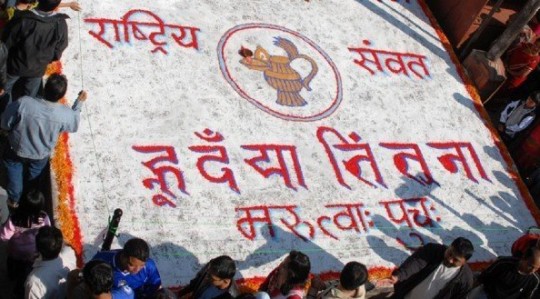 राष्ट्रिय संवत
न्हूदँया भिंतुना
मरुत्वाः पुचः